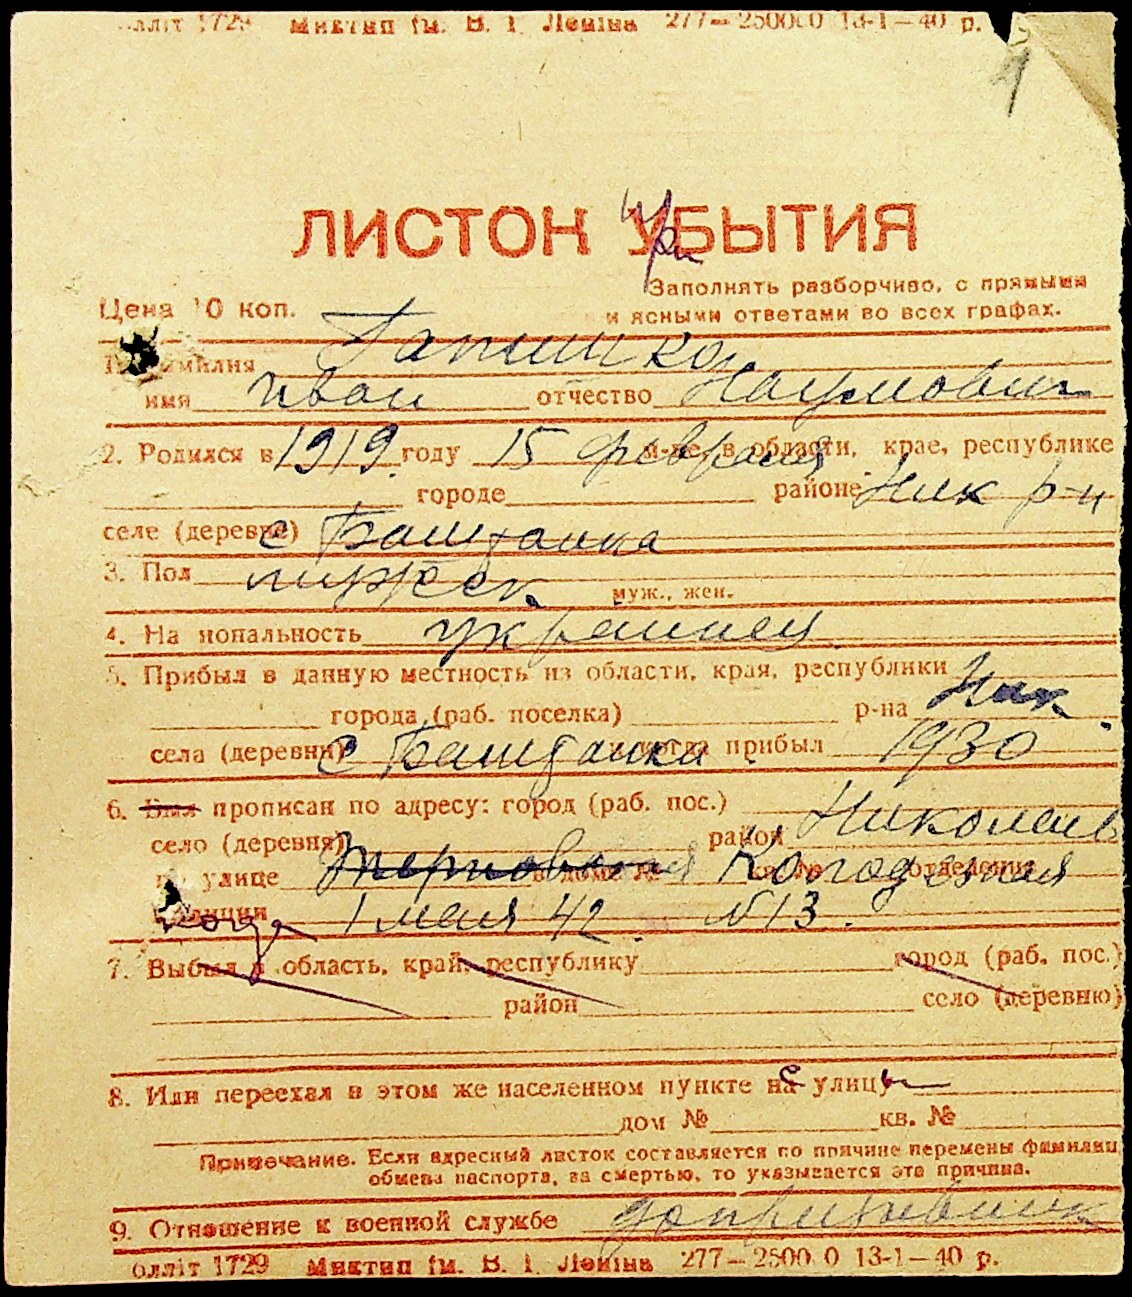 оллiт 1729 Миктип iм. В. I. Ленiна 277—25000 13-1—40 р.
1
ЛИСТОК УБЫТИЯ
при
Заполнять разборчиво, с прямыми
Цена 10 коп. и ясными ответами во всех графах.
1. Фамилия Гапишко
имя Иван отчество Наумович
2. Родился в 1919 году 15 февраля м-це, в области, крае, республике
городе районе Ник р-н
селе (деревне) с Баштанка
3. Пол мужск. муж., жен.
4. Национальность украинец
5. Прибыл в данную местность из области, края, республики
города (раб. поселка) р-на Ник.
села (деревни) с Баштанка и когда прибыл 1930
6. Был прописан по адресу: город (раб. пос.)
село (деревня) район Николаев
по улице Терновская в доме № кв. № отделения Колодезная
милиции когда 1 мая 42. N 13.
7. Выбыл в область, край, республику город (раб. пос.)
район село (деревню)
8. Или переехал в этом же населенном пункте на с улицы
дом № кв. №
Примечание. Если адресный листок составляется по причине перемены фамилии,
обмена паспорта, за смертью, то указывается эта причина.
9. Отношение к военной службе допризывник
оллiт 1729 Миктип iм. В. I. Ленiна 277—25000 13-1—40 р.